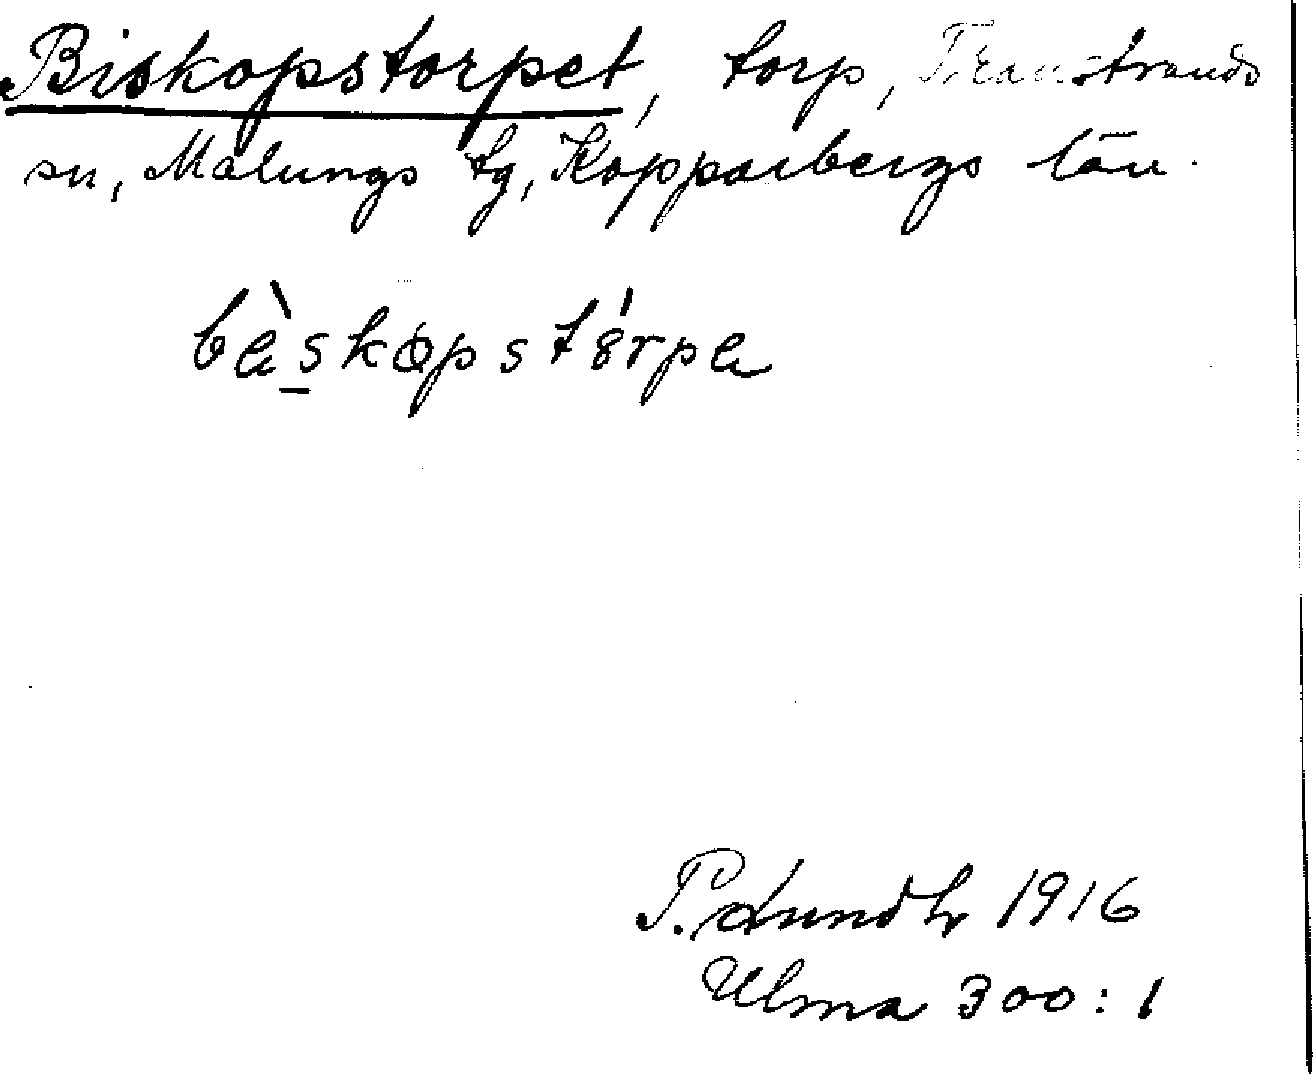 Biskopstorpet, torp, Transtrands
sn, Malungs tg, Kopparbergs län.
bèskopstórpe
P. Lundh 1916
Ulma 300:1